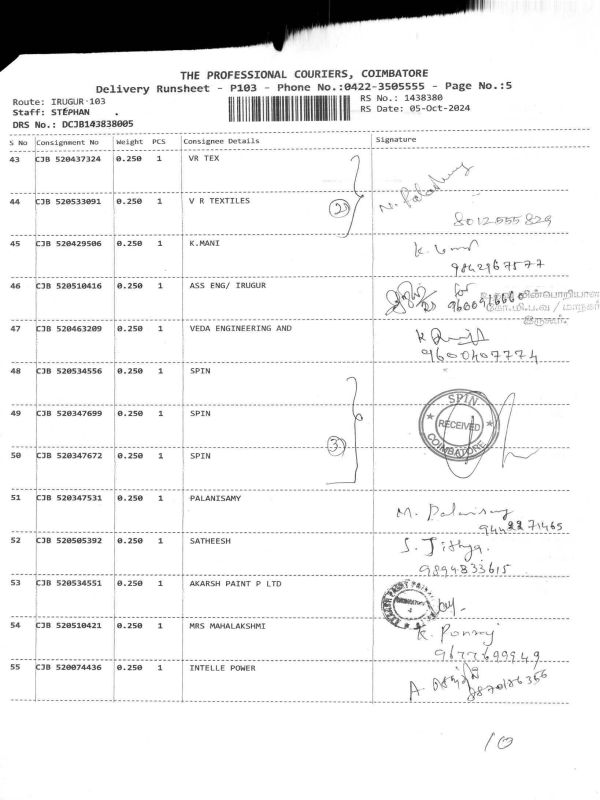 THE PROFESSIONAL COURIERS, COIMBATORE
Delivery Runsheet - P103 - Phone No.:0422-3505555 - Page No.:5
Route: IRUGUR-103 RS No.: 1438380
Staff: STEPHAN . RS Date: 05-Oct-2024
DRS No.: DCJB143838005
S No Consignment No Weight PCS Consignee Details Signature
43 CJB 520437324 0.250 1 VR TEX
44 CJB 520533091 0.250 1 V R TEXTILES 2
8012555829
45 CJB 520429506 0.250 1 K.MANI K.
9842967577
46 CJB 520510416 0.250 1 ASS ENG/ IRUGUR for
9600916660
47 CJB 520463209 0.250 1 VEDA ENGINEERING AND K
9600407774
48 CJB 520534556 0.250 1 SPIN
49 CJB 520347699 0.250 1 SPIN SPIN
RECEIVED
COIMBATORE
50 CJB 520347672 0.250 1 SPIN 3
51 CJB 520347531 0.250 1 PALANISAMY M. Palanisamy
9442271465
52 CJB 520505392 0.250 1 SATHEESH S. Jithya.
9894833615
53 CJB 520534551 0.250 1 AKARSH PAINT P LTD
54 CJB 520510421 0.250 1 MRS MAHALAKSHMI K.
9677699949
55 CJB 520074436 0.250 1 INTELLE POWER A
9870186356
10